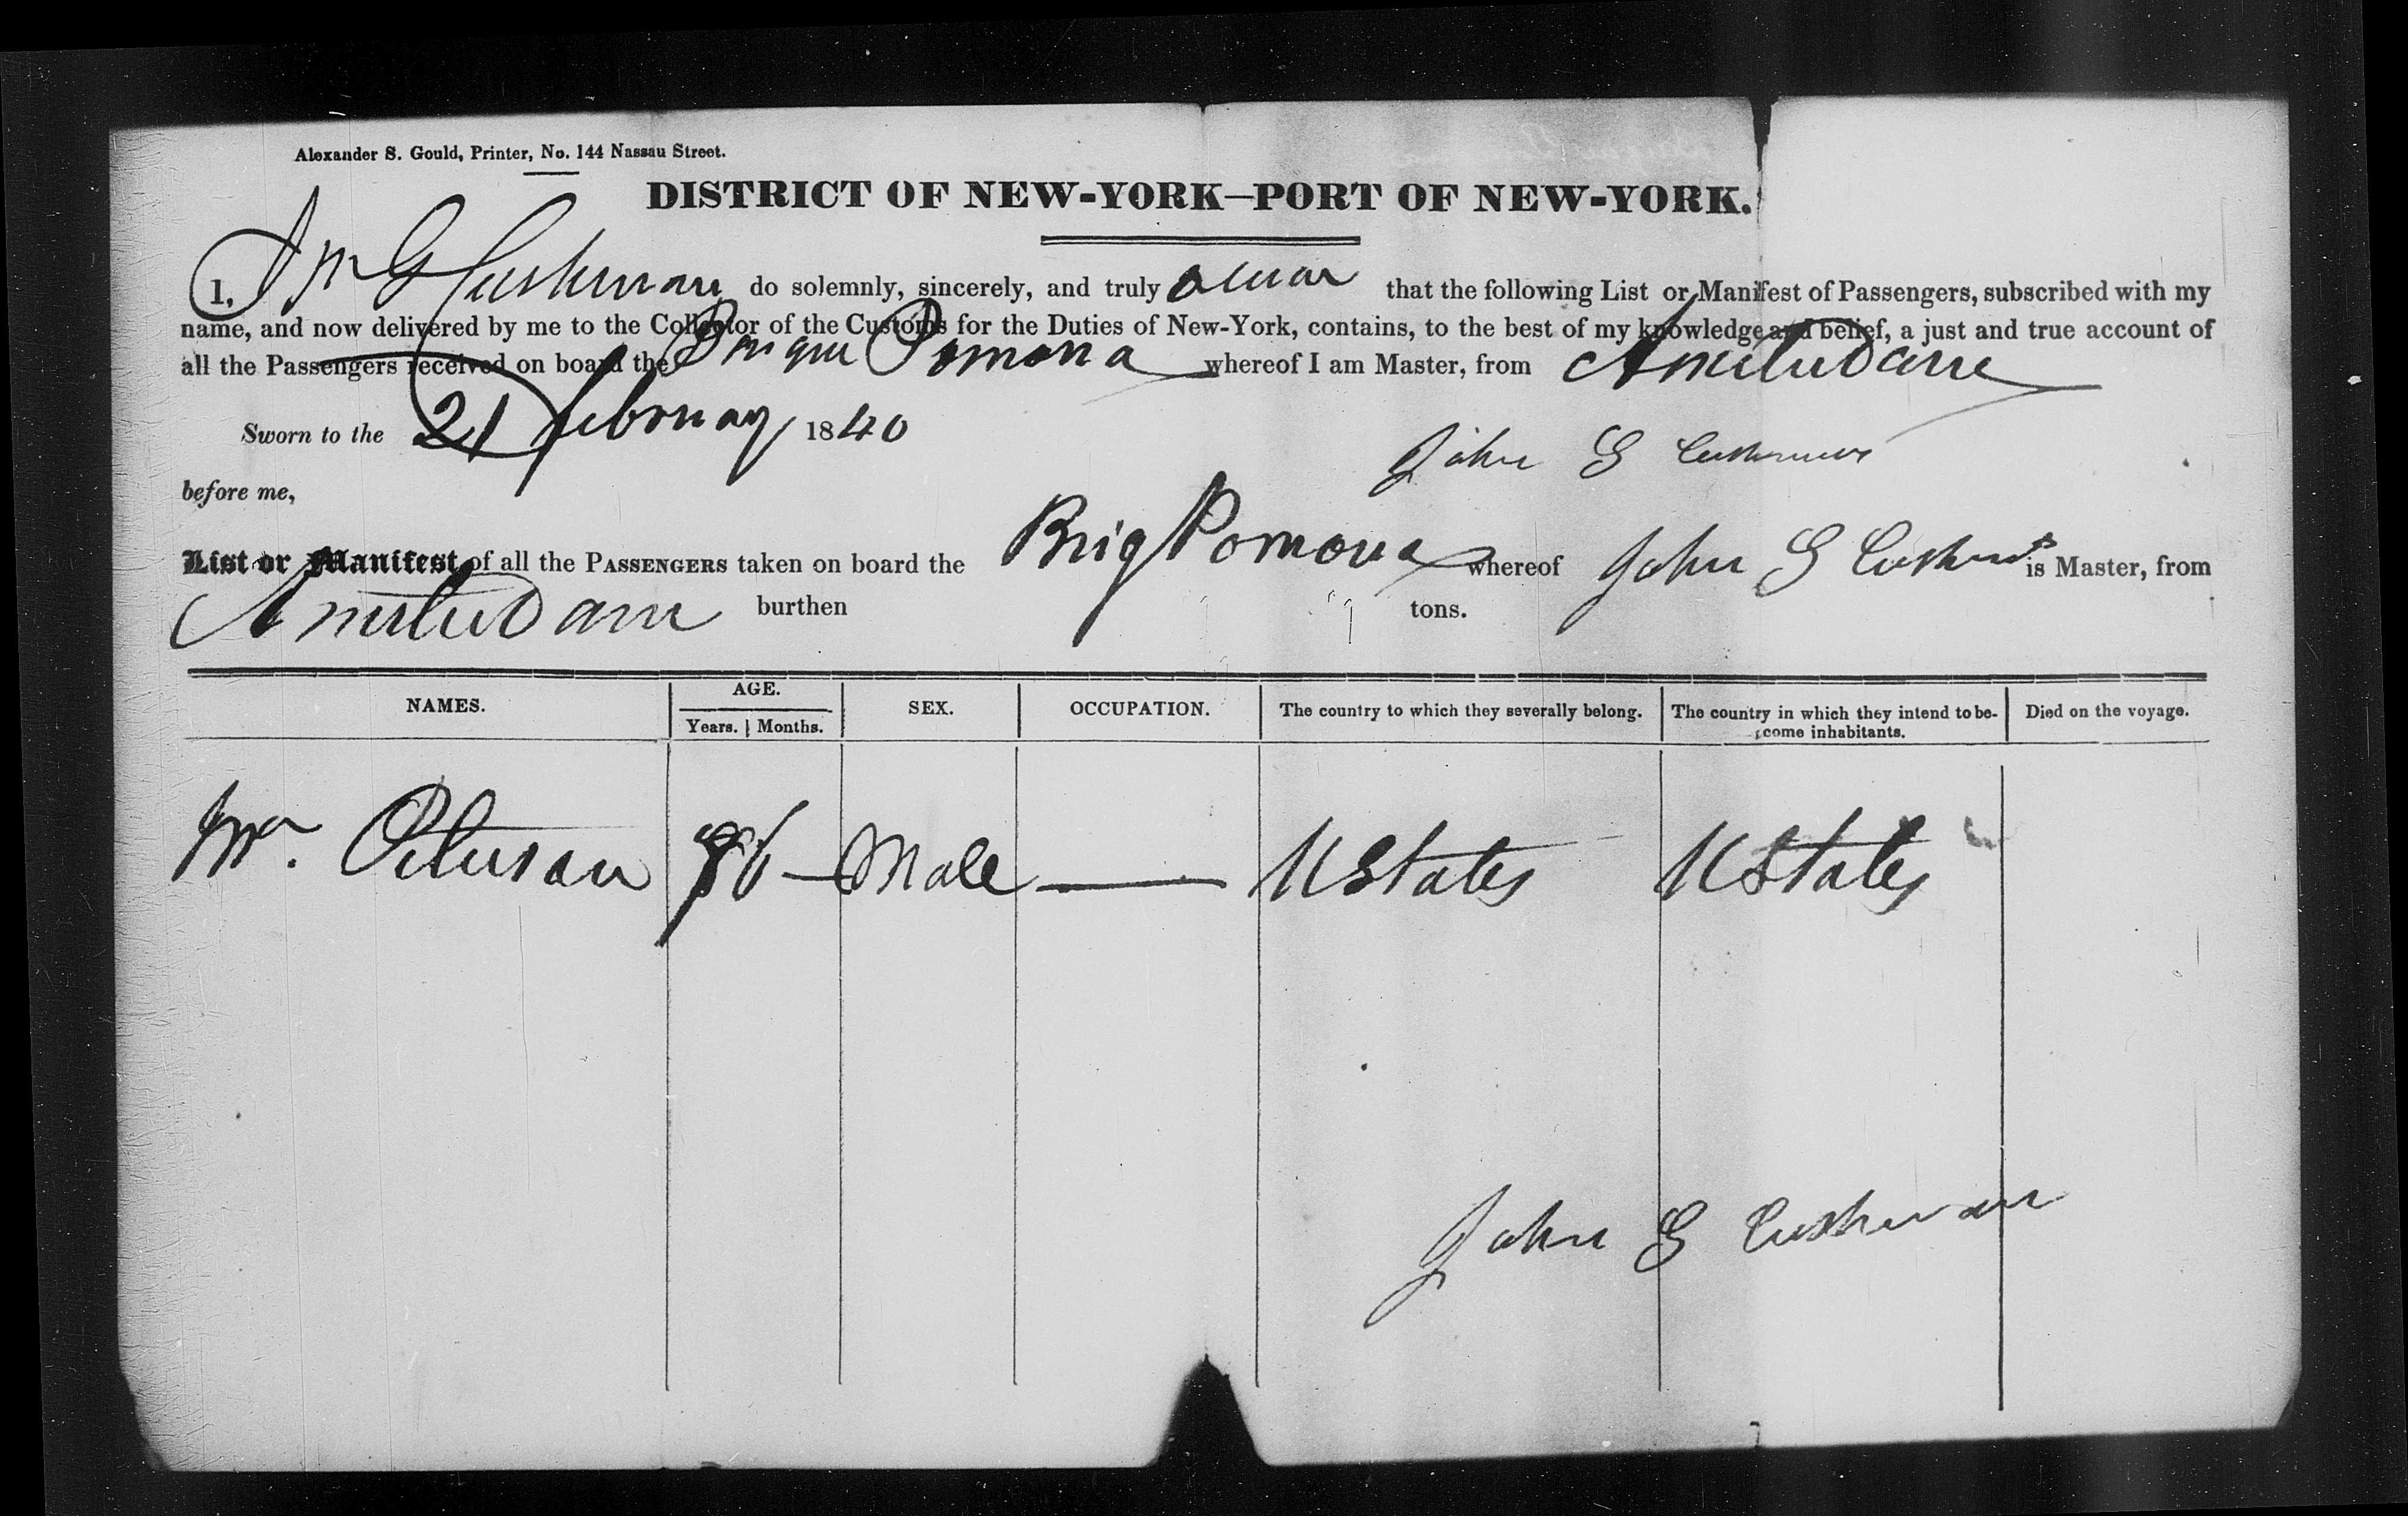 Alexander S. Gould, Printer, No. 144 Nassau Street.
DISTRICT OF NEW-YORK—PORT OF NEW-YORK.
I, Jn G Cushman do solemnly, sincerely, and truly swear that the following List or Manifest of Passengers, subscribed with my
name, and now delivered by me to the Collector of the Customs for the Duties of New-York, contains, to the best of my knowledge and belief, a just and true account of
all the Passengers received on board the Pomona whereof I am Master, from Amsterdam
Sworn to the 21 February 1840
John G Cushman
before me,
List or Manifest of all the PASSENGERS taken on board the Brig Pomona whereof John G Cushman is Master, from
Amsterdam burthen tons.
NAMES. AGE. SEX. OCCUPATION. The country to which they severally belong. The country in which they intend to be- Died on the voyage.
Years. Months. come inhabitants.
Peterson — Male — UStates UStates
John G Cushman